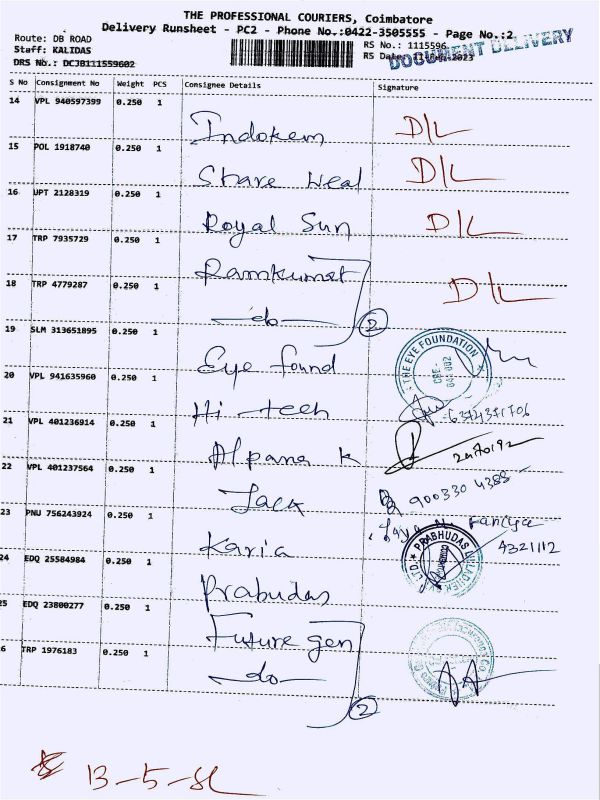 THE PROFESSIONAL COURIERS, Coimbatore
Delivery Runsheet - PC2 - Phone No.:0422-3505555 - Page No.:2
Route: DB ROAD
Staff: KALIDAS
DRS No.: DCJB111559602
RS No.: 1115596
RS Date: 2023
DOCUMENT DELIVERY
S No Consignment No Weight PCS Consignee Details Signature
14 VPL 940597399 0.250 1 Indokem D/L
15 POL 1918740 0.250 1 Share Weal D/L
16 UPT 2128319 0.250 1 Royal Sun D/L
17 TRP 7935729 0.250 1 Ramkumar
18 TRP 4779287 0.250 1 do 2 D/L
19 SLM 313651895 0.250 1 Eye found THE EYE FOUNDATION
20 VPL 941635960 0.250 1 Hi-tech 6374371706
21 VPL 401236914 0.250 1 Alpana K
22 VPL 401237564 0.250 1 Jack 900330 4388
23 PNU 756243924 0.250 1 Karia Jaya
4321112
24 EDQ 25584984 0.250 1 Prabudas PRABHUDAS LTD.
25 EDQ 23800277 0.250 1 Future gen
26 TRP 1976183 0.250 1 do 2
13-5-SL